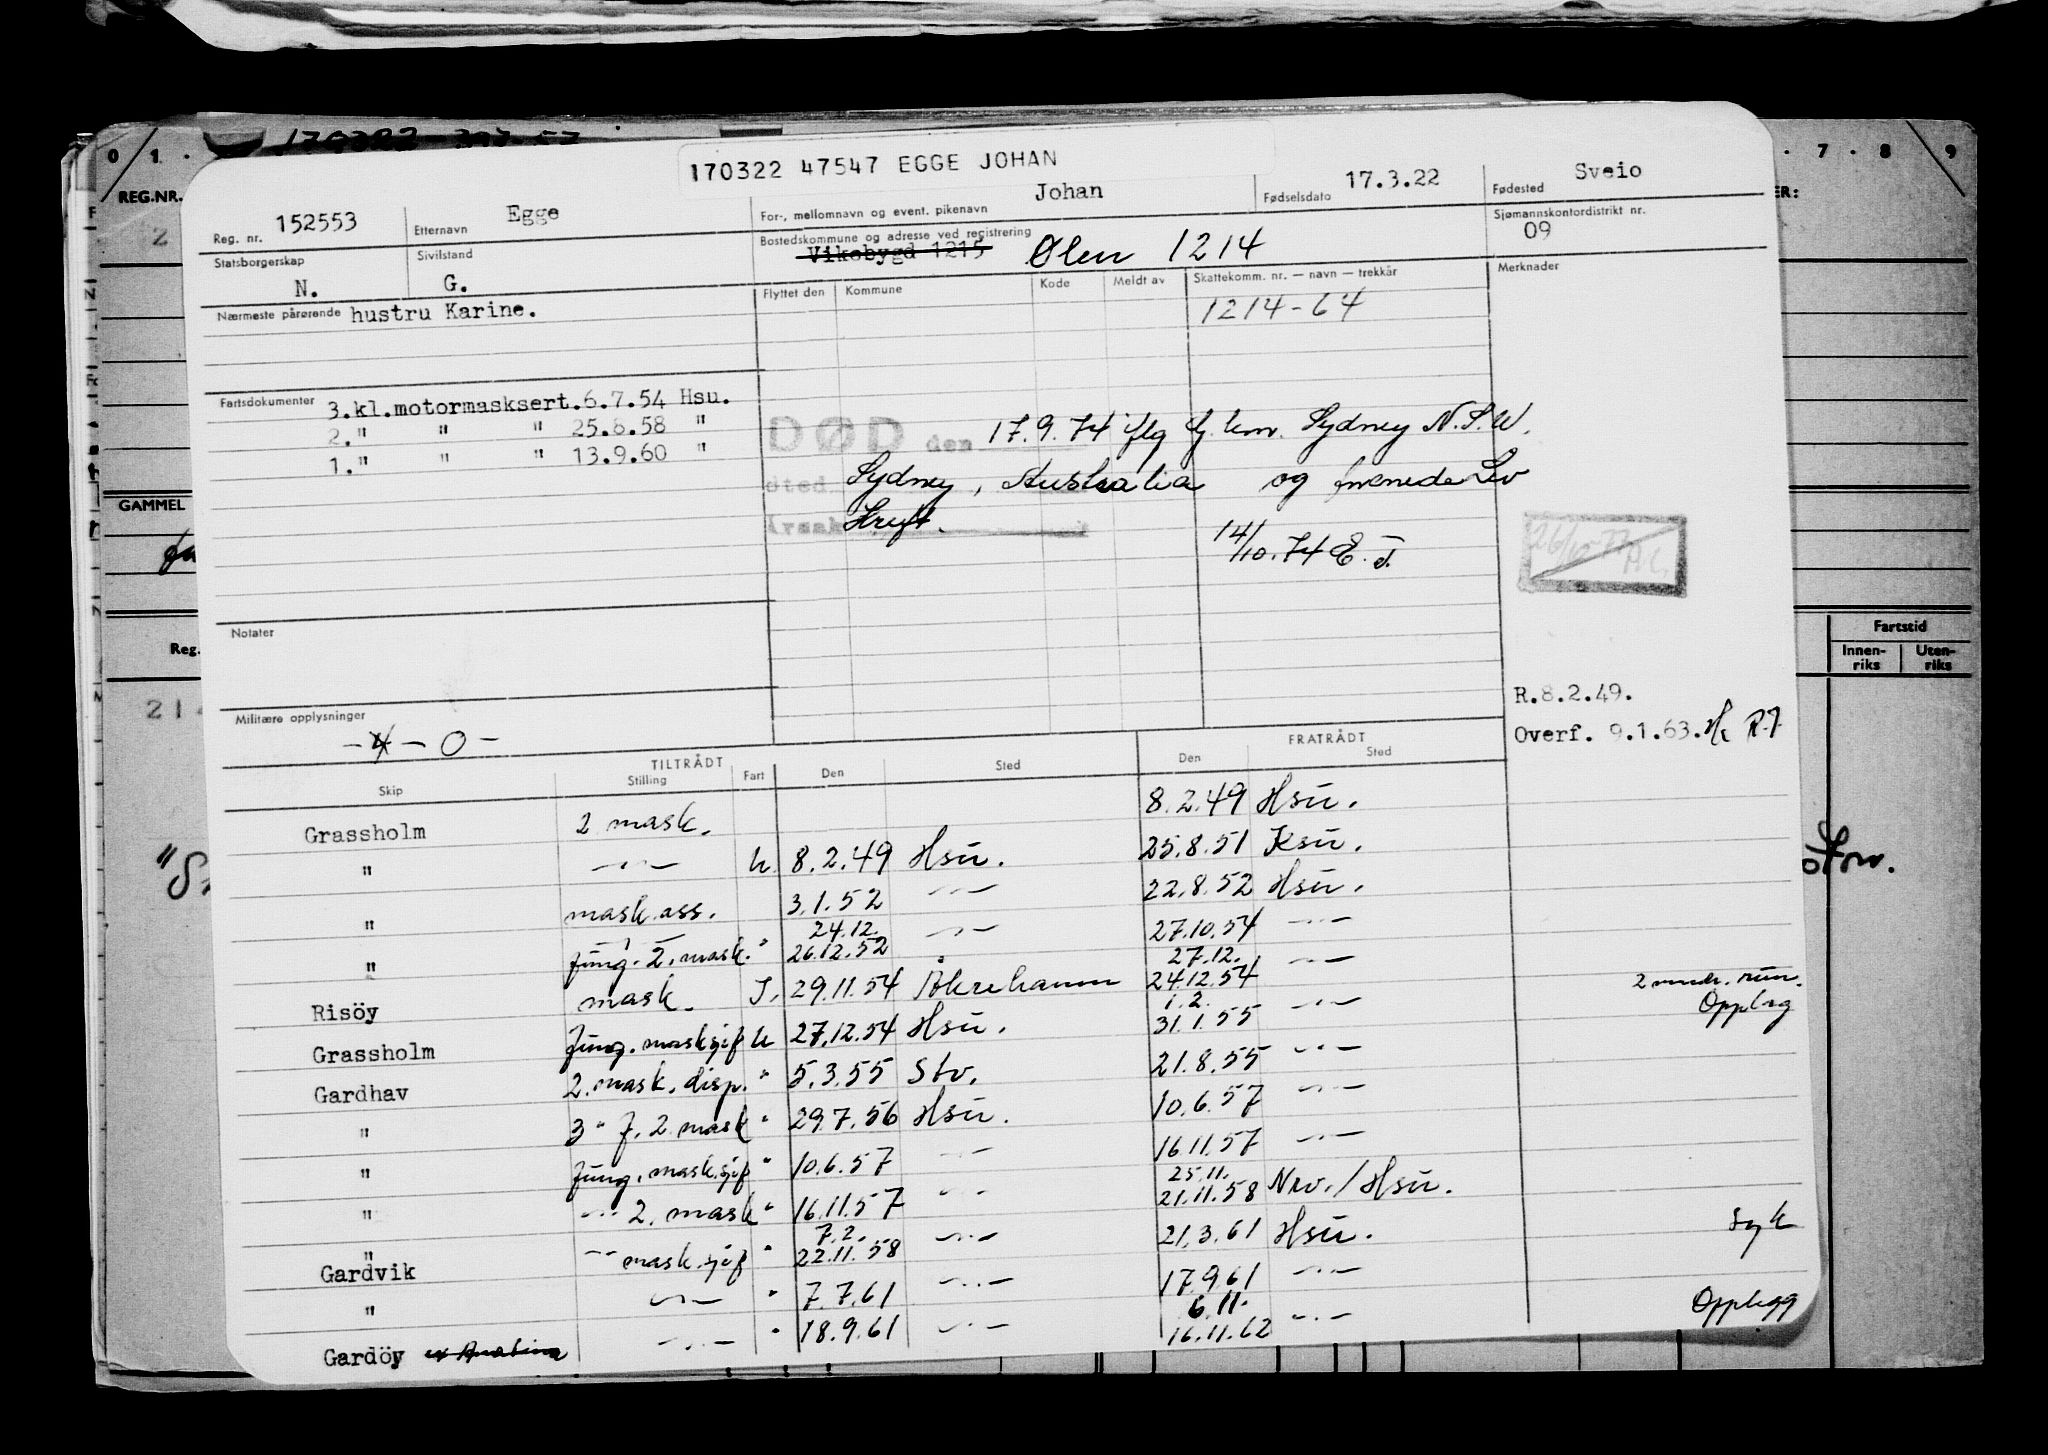 0 1 · 7 · 8 9
REG.NR.
170322 47547 EGGE JOHAN
Reg. nr. 152553 Etternavn Egge For-, mellomnavn og event. pikenavn Johan Fødselsdato 17.3.22 Fødested Sveio
Statsborgerskap N. Sivilstand G. Bostedskommune og adresse ved registrering Vikebygd 1215 Ølen 1214 Sjømannskontordistrikt nr. 09
Nærmeste pårørende hustru Karine. Flyttet den Kommune Kode Meldt av Skattekomm. nr. — navn — trekkår Merknader
1214-64
Fartsdokumenter 3.kl.motormasksert.6.7.54 Hsu.
2." " " 25.8.58 "
1." " " 13.9.60 "
DØD den 17.9.74 iflg Sydney N.S.W.
sted Sydney, Australia og
Årsak
14/10.74 E.J.
GAMMEL
Notater
Reg.
Fartstid
Innen-riks Uten-riks
R.8.2.49.
Overf. 9.1.63.
Militære opplysninger -4-0-
TILTRÅDT FRATRÅDT
Skip Stilling Fart Den Sted Den Sted
Grassholm 2 mask. 8.2.49 Hsu.
" —"— U. 8.2.49 Hsu. 25.8.51 Ksu.
" mask.ass. 3.1.52 —"— 22.8.52 Hsu.
" fung. 2. mask. " 24.12. 26.12.52 —"— 27.10.54 —"—
Risöy mask. I. 29.11.54 Åkrehamn 27.12. 24.12.54 —"—
Grassholm fung. masksjef U 27.12.54 Hsu. 1.2. 31.1.55 —"— 2 mndr. Opplag
Gardhav 2. mask. disp. " 5.3.55 Stv. 21.8.55 —"—
" 3 " f. 2 mask " 29.7.56 Hsu. 10.6.57 —"—
" fung. mask.sjef " 10.6.57 —"— 16.11.57 —"—
" —"— 2. mask " 16.11.57 —"— 25.11. 21.11.58 Nrv./Hsu.
" Gardvik —"— mask.sjef " 7.2. 22.11.58 —"— 21.3.61 Hsu. Syk
" —"— " 7.7.61 —"— 17.9.61 —"—
Gardöy —"— " 18.9.61 —"— 6.11. 16.11.62 —"— Opplegg